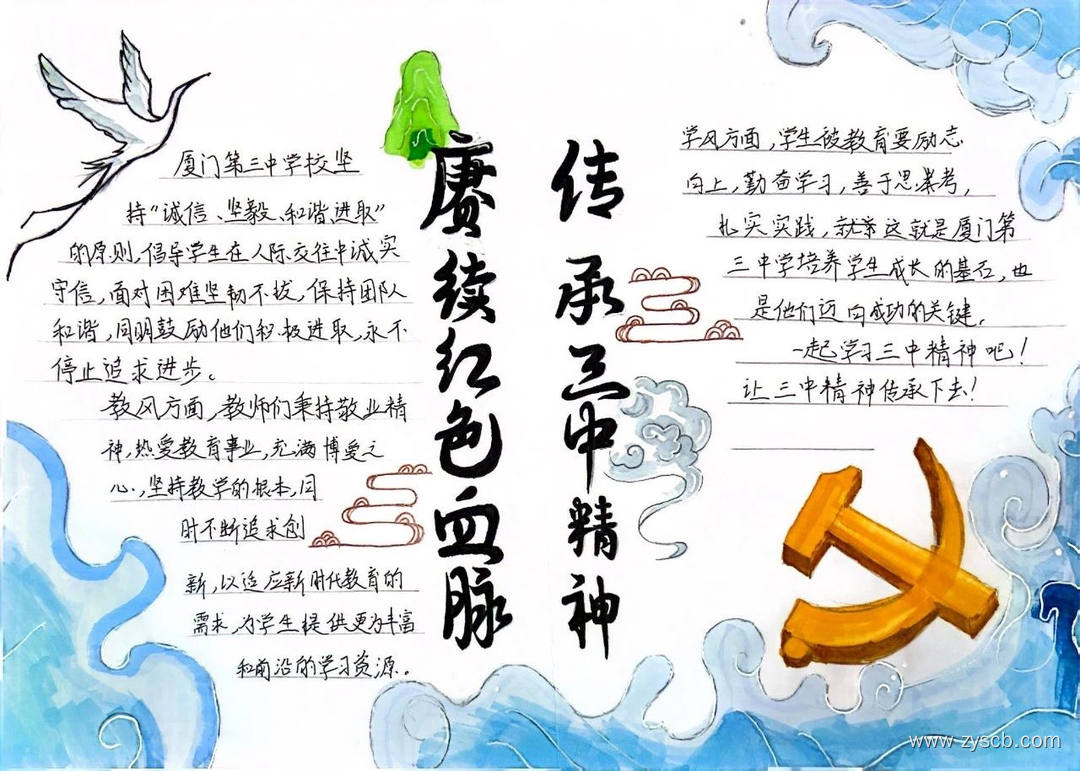 厦门第三中学校坚
持“诚信、坚毅、和谐、进取”
的原则,倡导学生在人际交往中诚实
守信,面对困难坚韧不拔,保持团队
和谐,同时鼓励他们积极进取,永不
停止追求进步。
教风方面,教师们秉持敬业精
神,热爱教育事业,充满博爱之
心,坚持教学的根本,同
时不断追求创
新,以适应新时代教育的
需求,为学生提供更为丰富
和前沿的学习资源。
赓续红色血脉
传承三中精神
学风方面,学生被教育要励志
向上,勤奋学习,善于思考,
扎实实践,就这就是厦门第
三中学培养学生成长的基石,也
是他们迈向成功的关键,
一起学习三中精神吧!
让三中精神传承下去!
www.zyscb.com